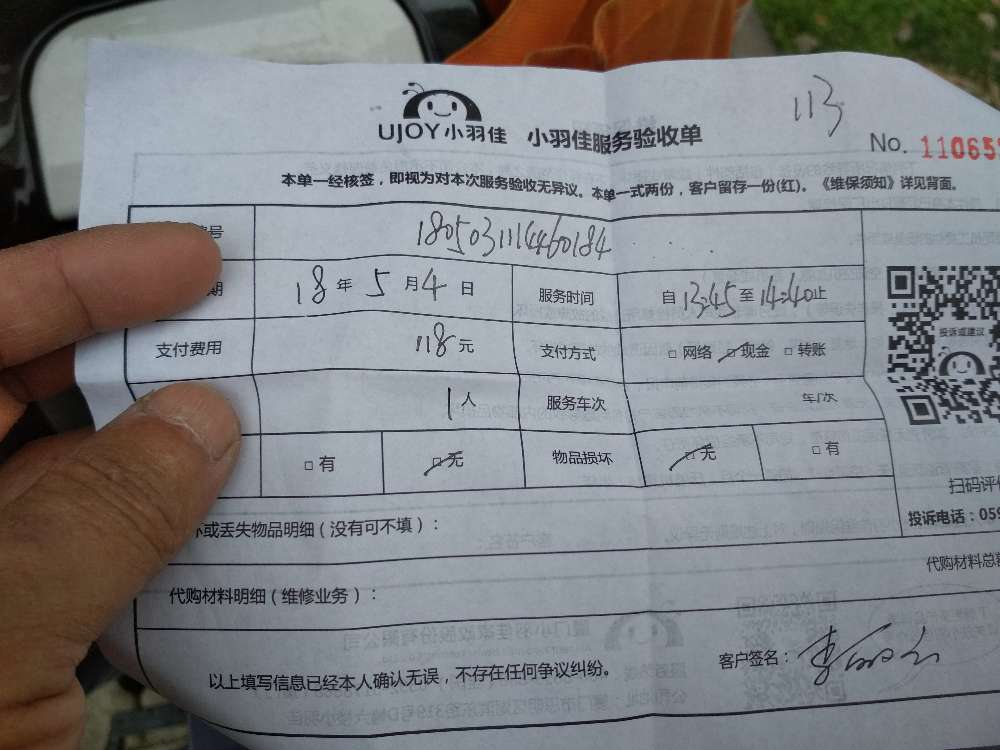 113
UJOY小羽佳 小羽佳服务验收单
No. 11065
本单一经核签，即视为对本次服务验收无异议。本单一式两份，客户留存一份(红)。《维保须知》详见背面。
号 1805031114460184
期 18年5月4日 服务时间 自13:45至14:40止
支付费用 118元 支付方式 □网络 □现金 □转账
投诉或建议
1人 服务车次 车/次
□有 □无 物品损坏 □无 □有
扫码评价
投诉电话：059
坏或丢失物品明细（没有可不填）：
代购材料总额
代购材料明细（维修业务）：
以上填写信息已经本人确认无误，不存在任何争议纠纷。 客户签名：